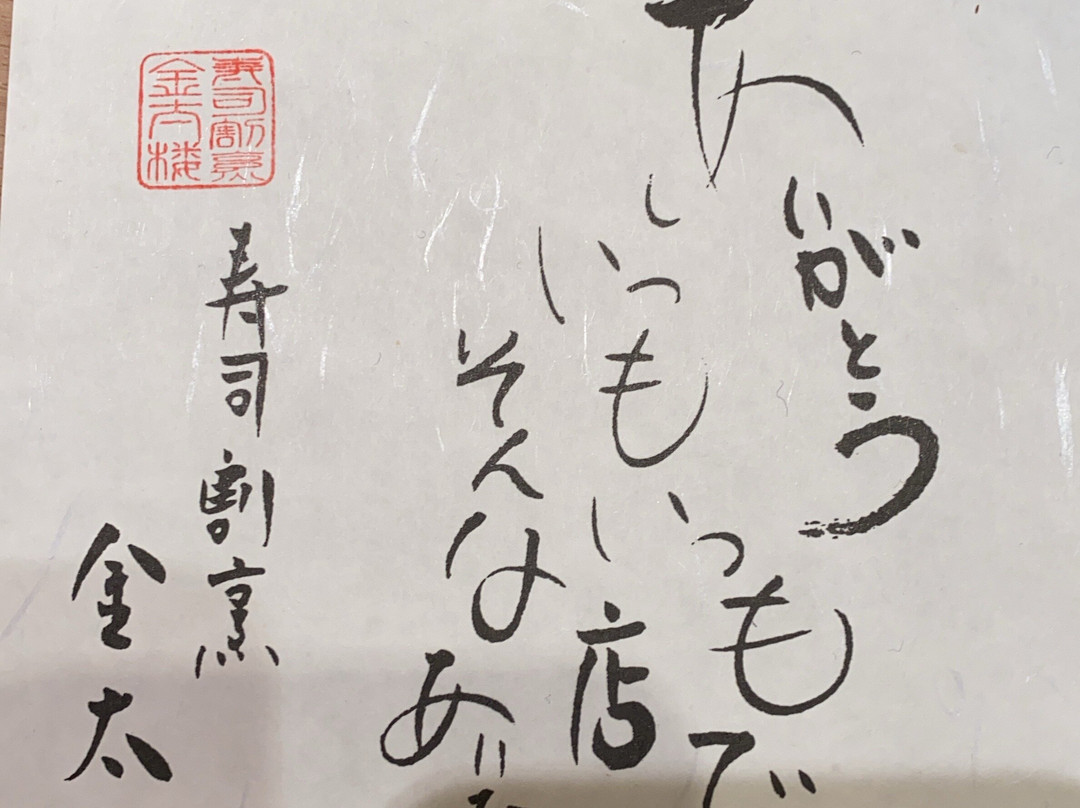 ありがとう
いつもで
いつも
店
そんな
寿司割烹
金太
寿司割烹
金太楼